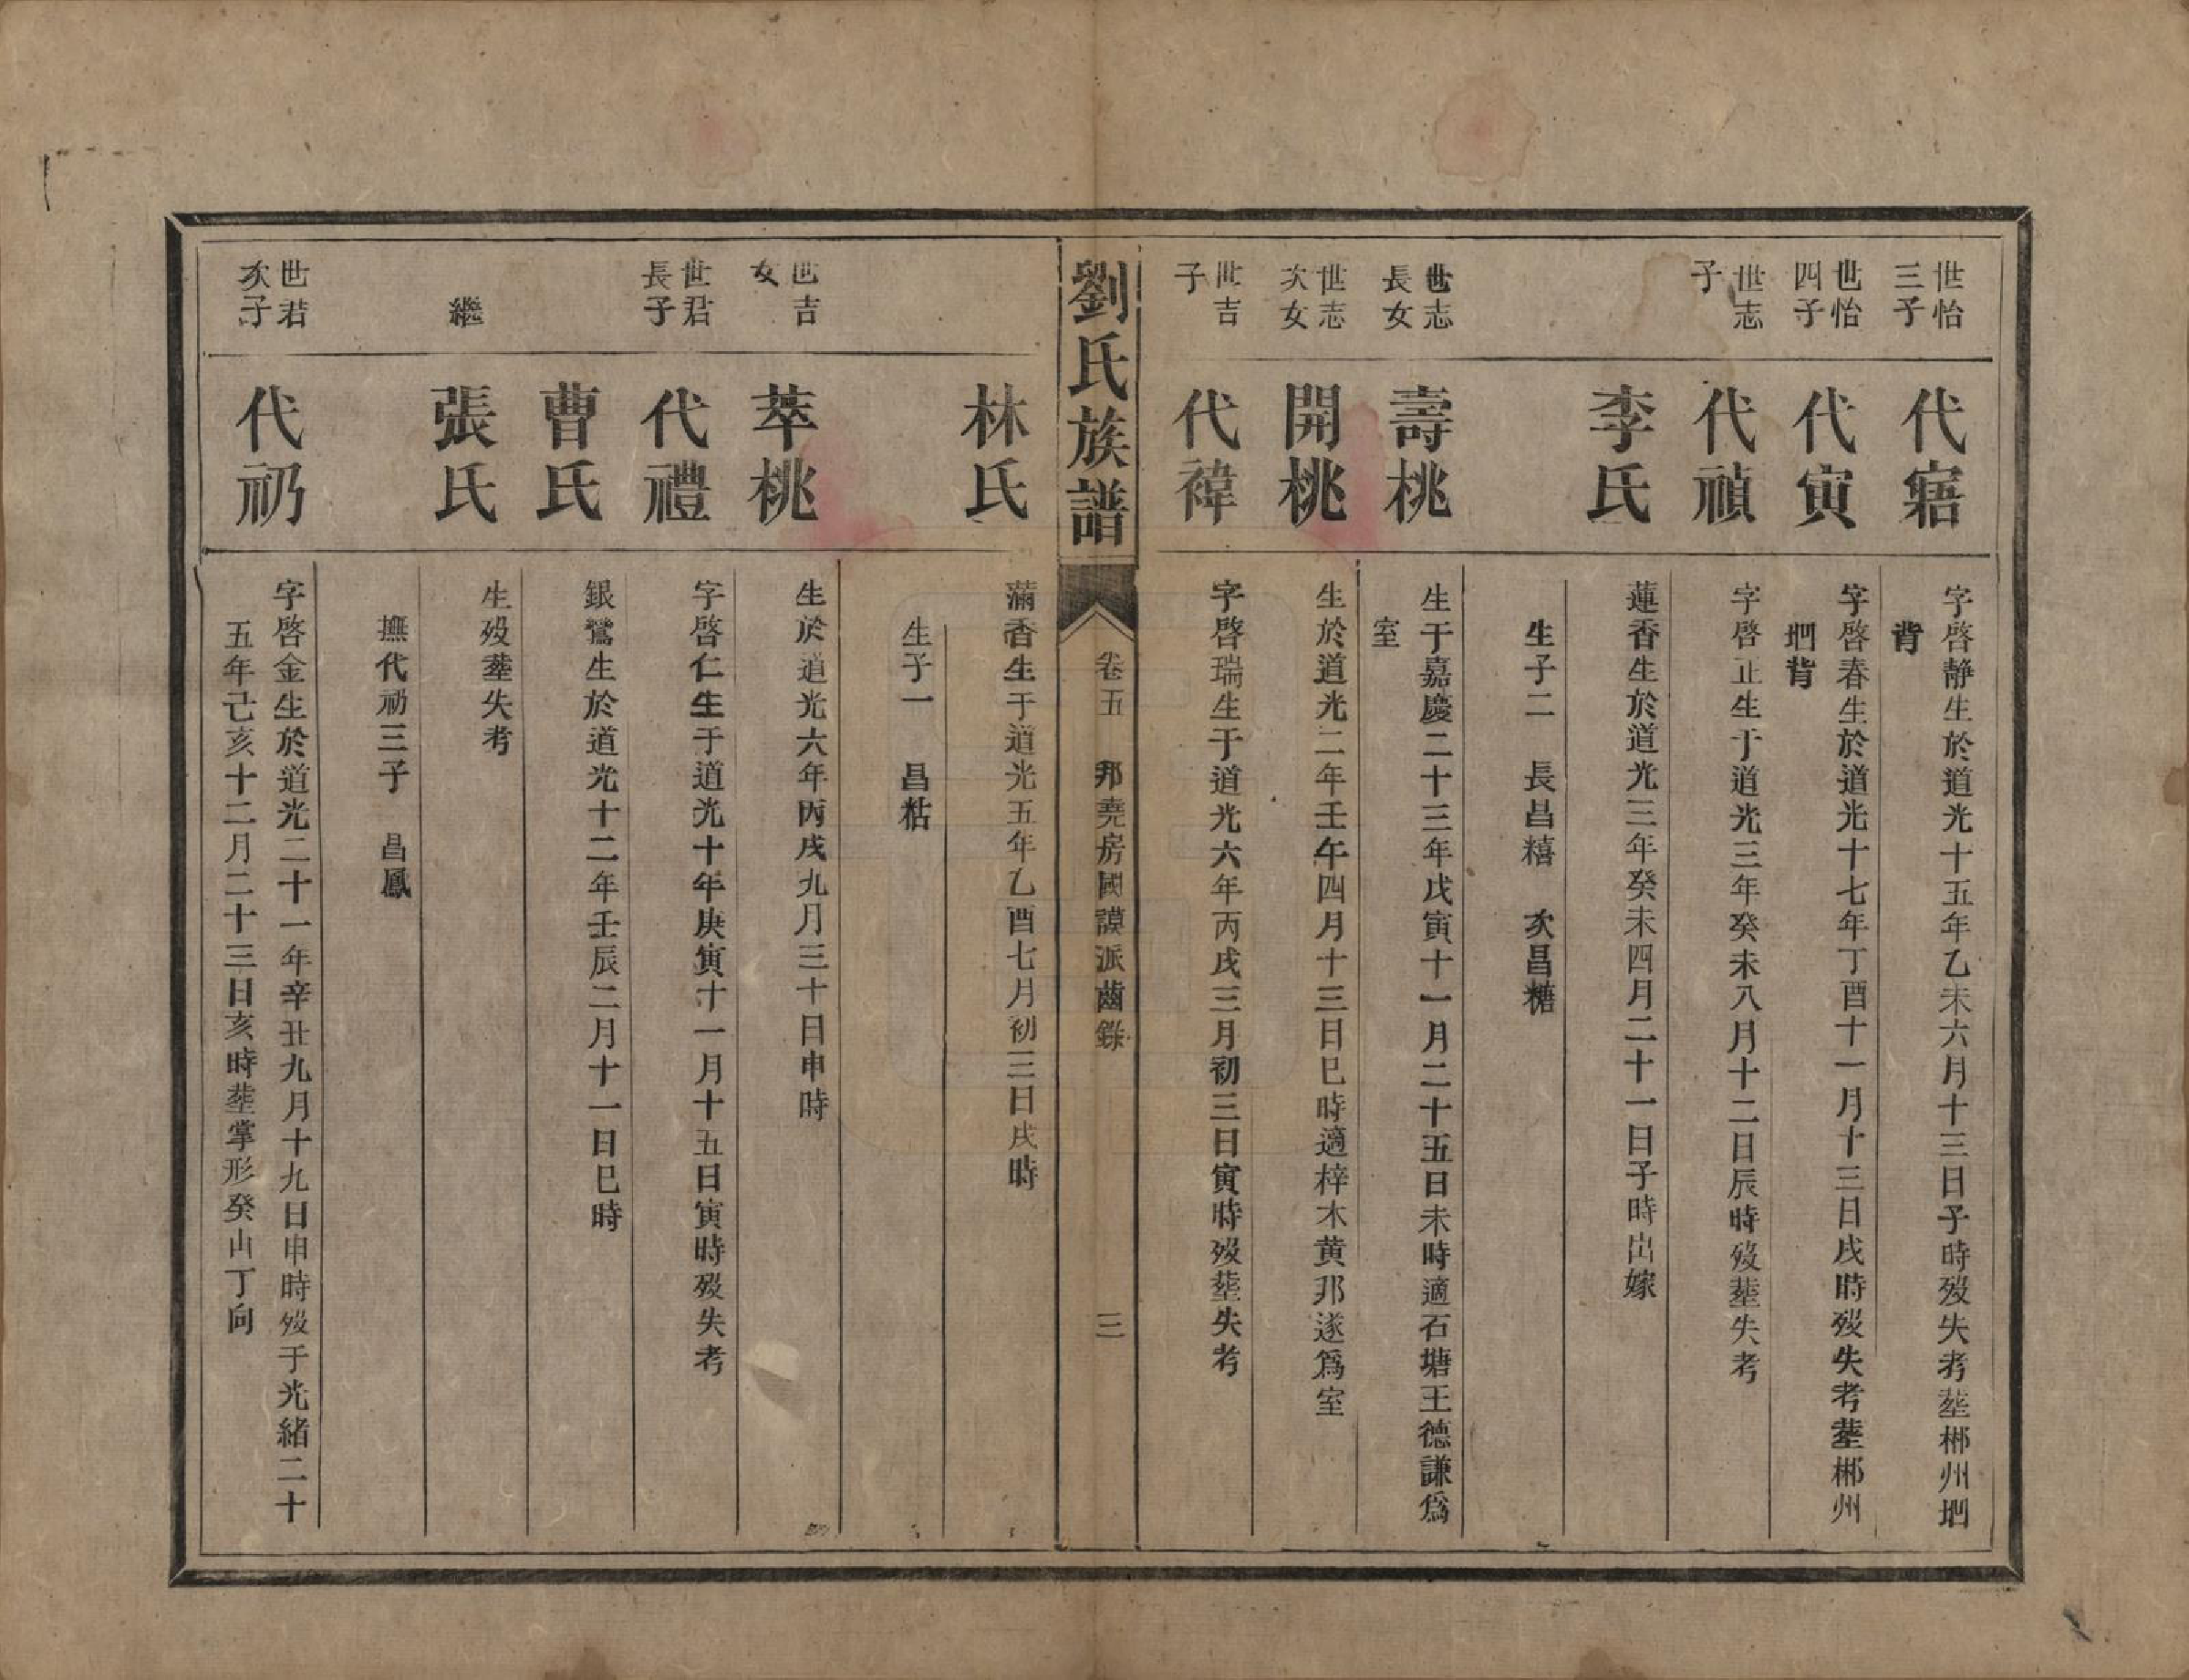 世怡
三子
代寤
字啓靜生於道光十五年乙未六月十三日子時歿失考塟郴州垇
背
世怡
四子
代寅
字啓春生於道光十七年丁酉十一月十三日戌時歿失考塟郴州
垇背
世志
子
代禎
字啓正生于道光三年癸未八月十二日辰時歿塟失考
李氏
蓮香生於道光三年癸未四月二十一日子時出嫁
生子二　長昌糦　次昌糖
世志
長女
壽桃
生于嘉慶二十三年戊寅十一月二十五日未時適石塘王德謙爲
室
世志
次女
開桃
生於道光二年壬午四月十三日巳時適梓木黄邦遂爲室
世吉
子
代禕
字啓瑞生于道光六年丙戌三月初三日寅時歿塟失考
劉氏族譜
卷五　邦堯房國謨派齒錄
三
林氏
滿香生于道光五年乙酉七月初三日戌時
生子一　昌粘
世吉
女
萃桃
生於道光六年丙戌九月三十日申時
世君
長子
代禮
字啓仁生于道光十年庚寅十一月十五日寅時歿失考
曹氏
銀鶯生於道光十二年壬辰二月十一日巳時
繼
張氏
生歿塟失考
撫代礽三子　昌鳳
世君
次子
代礽
字啓金生於道光二十一年辛丑九月十九日申時歿于光緒二十
五年己亥十二月二十三日亥時塟掌形癸山丁向